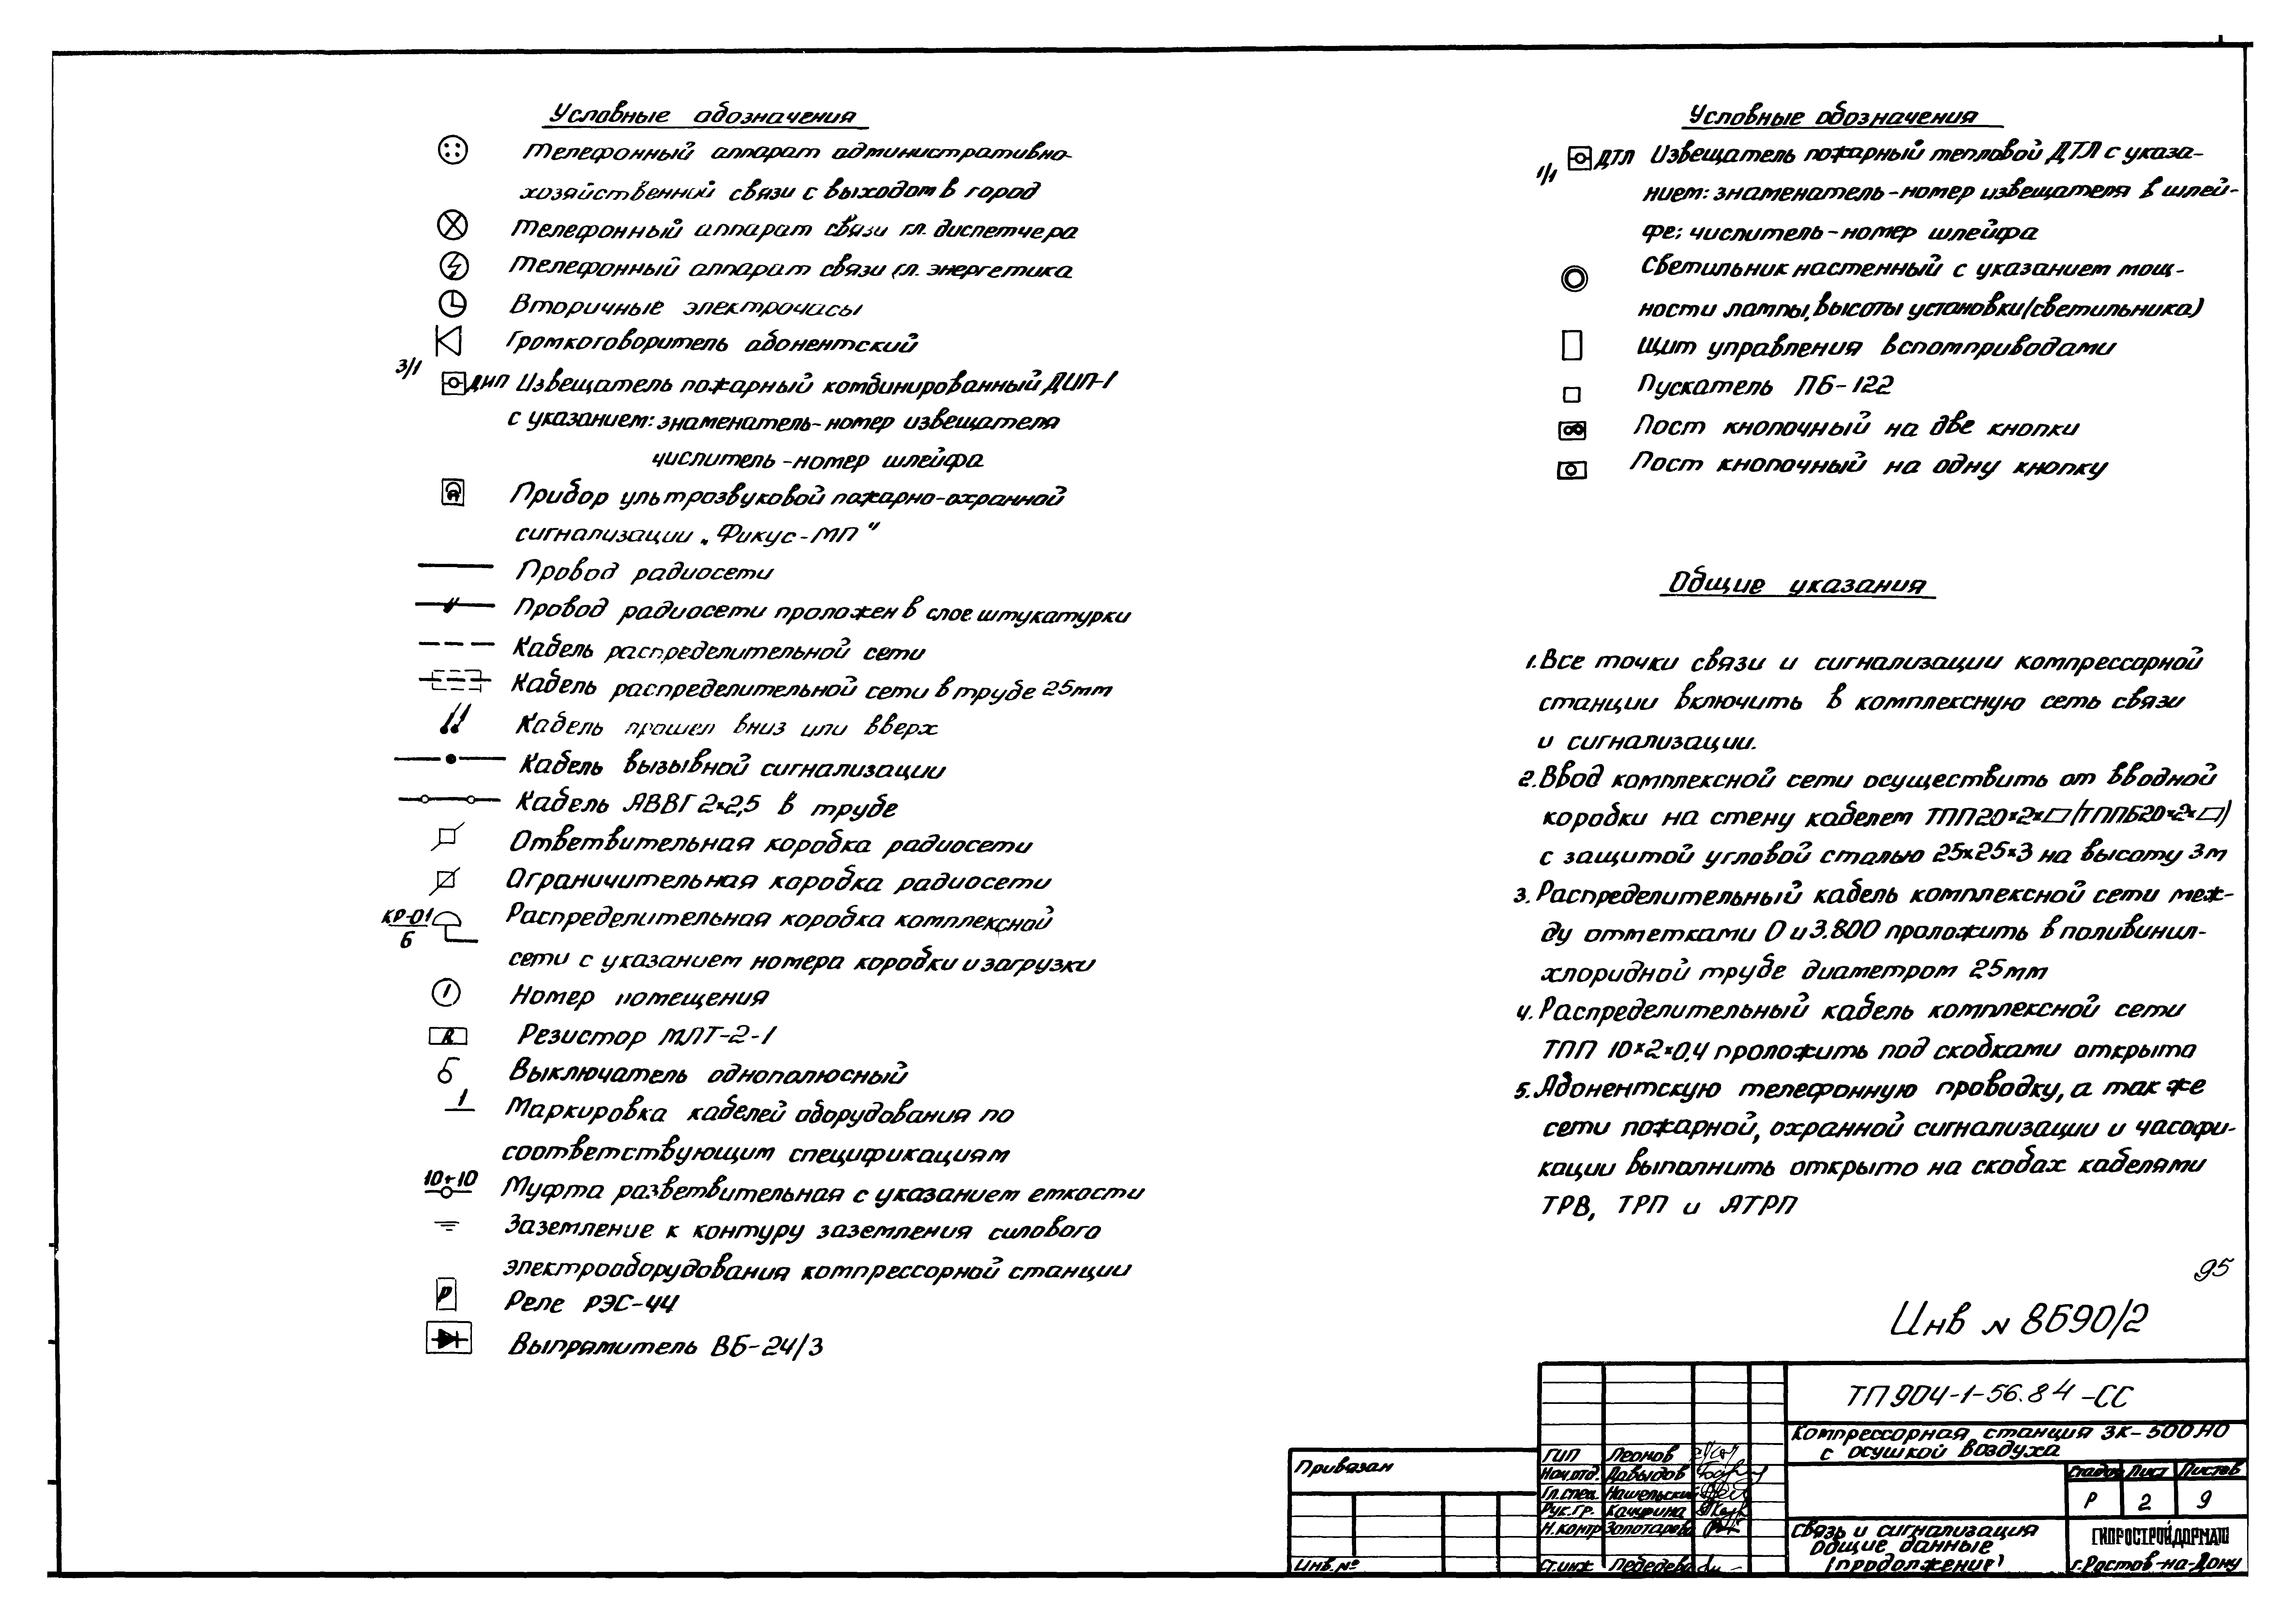 Условные обозначения
Телефонный аппарат административно-
хозяйственной связи с выходом в город
Телефонный аппарат связи гл. диспетчера
Телефонный аппарат связи гл. энергетика
Вторичные электрочасы
Громкоговоритель абонентский
3/1
ДИП Извещатель пожарный комбинированный ДИП-1
с указанием: знаменатель-номер извещателя
числитель-номер шлейфа
Прибор ультразвуковой пожарно-охранной
сигнализации „Фикус-МП"
Провод радиосети
Провод радиосети проложен в слое штукатурки
Кабель распределительной сети
Кабель распределительной сети в трубе 25мм
Кабель прошел вниз или вверх
Кабель вызывной сигнализации
Кабель АВВГ 2×2,5 в трубе
Ответвительная коробка радиосети
Ограничительная коробка радиосети
КР-01
6
Распределительная коробка комплексной
сети с указанием номера коробки и загрузки
1 Номер помещения
R Резистор МЛТ-2-1
Выключатель однополюсный
1 Маркировка кабелей оборудования по
соответствующим спецификациям
10+10 Муфта разветвительная с указанием емкости
Заземление к контуру заземления силового
электрооборудования компрессорной станции
Р Реле РЭС-44
Выпрямитель ВБ-24/3
Условные обозначения
1/1
ДТЛ Извещатель пожарный тепловой ДТЛ с указа-
нием: знаменатель-номер извещателя в шлей-
фе; числитель-номер шлейфа
Светильник настенный с указанием мощ-
ности лампы, высоты установки (светильника)
Щит управления вспомприводами
Пускатель ПБ-122
Пост кнопочный на две кнопки
Пост кнопочный на одну кнопку
Общие указания
1. Все точки связи и сигнализации компрессорной
станции включить в комплексную сеть связи
и сигнализации.
2. Ввод комплексной сети осуществить от вводной
коробки на стену кабелем ТПП20×2×▱ (ТППБ20×2×▱)
с защитой угловой сталью 25×25×3 на высоту 3м
3. Распределительный кабель комплексной сети меж-
ду отметками 0 и 3.800 проложить в поливинил-
хлоридной трубе диаметром 25мм
4. Распределительный кабель комплексной сети
ТПП 10×2×0,4 проложить под скобками открыто
5. Абонентскую телефонную проводку, а так же
сети пожарной, охранной сигнализации и часофи-
кации выполнить открыто на скобах кабелями
ТРВ, ТРП и АТРП
95
Инв N 8690/2
ТП 904-1-56.84-СС
Компрессорная станция 3К-500 АО
с осушкой воздуха
Привязан
Инв. №
ГИП Леонов
Нач.отд. Давыдов
Гл.спец. Нашельский
Рук.гр. Качурина
Н.контр Золотарева
Ст.инж Лебедева
Стадия Лист Листов
Р 2 9
Связь и сигнализация
Общие данные
(продолжение)
ГИПРОСТРОЙДОРМАШ
г. Ростов-на-Дону